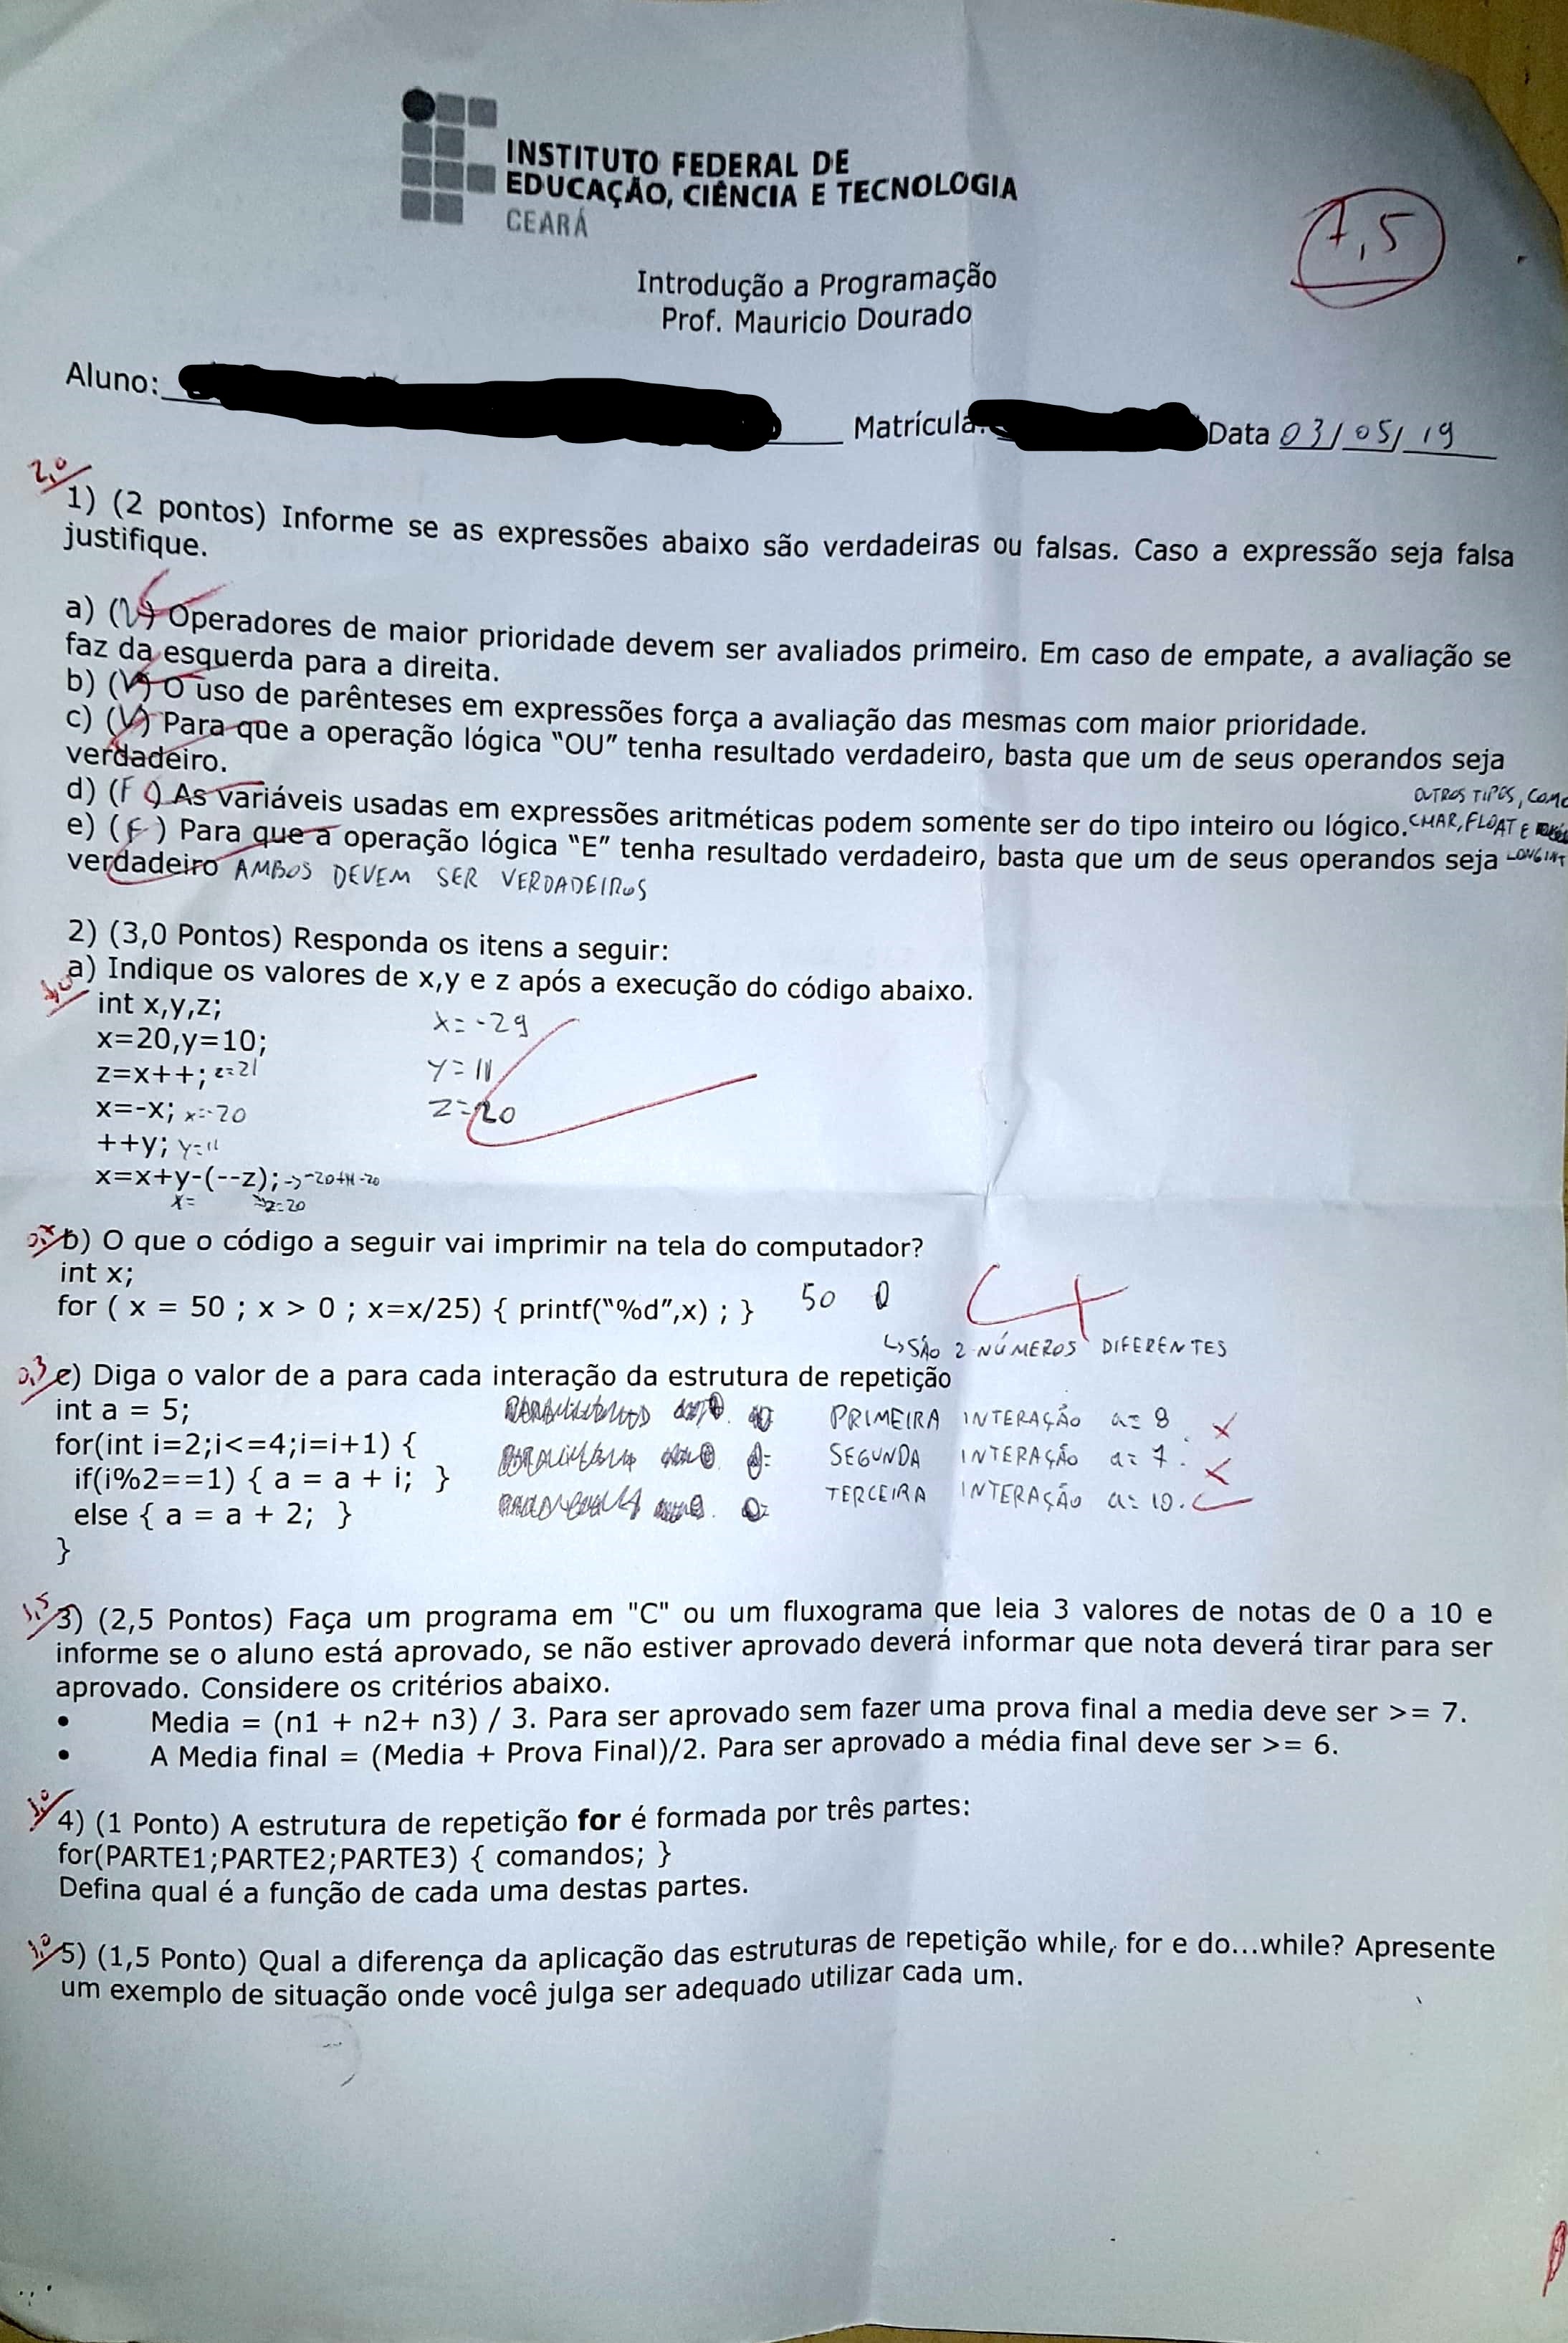 INSTITUTO FEDERAL DE
EDUCAÇÃO, CIÊNCIA E TECNOLOGIA
CEARÁ
7,5
Introdução a Programação
Prof. Mauricio Dourado
Aluno:
Matrícula: Data 03/05/19
2,0
1) (2 pontos) Informe se as expressões abaixo são verdadeiras ou falsas. Caso a expressão seja falsa
justifique.
a) (V) Operadores de maior prioridade devem ser avaliados primeiro. Em caso de empate, a avaliação se
faz da esquerda para a direita.
b) (V) O uso de parênteses em expressões força a avaliação das mesmas com maior prioridade.
c) (V) Para que a operação lógica "OU" tenha resultado verdadeiro, basta que um de seus operandos seja
verdadeiro.
OUTROS TIPOS, COMO
d) (F ) As variáveis usadas em expressões aritméticas podem somente ser do tipo inteiro ou lógico. CHAR, FLOAT E
e) (F ) Para que a operação lógica "E" tenha resultado verdadeiro, basta que um de seus operandos seja LONG INT
verdadeiro AMBOS DEVEM SER VERDADEIROS
2) (3,0 Pontos) Responda os itens a seguir:
1,0 a) Indique os valores de x,y e z após a execução do código abaixo.
int x,y,z;
x=-29
x=20,y=10;
z=x++; z=21
y=11
x=-x; x=-20
z=20
++y; y=11
x=x+y-(--z); -> -20+11-20
x= z=20
b) O que o código a seguir vai imprimir na tela do computador?
int x;
for ( x = 50 ; x > 0 ; x=x/25) { printf("%d",x) ; } 50 0
↳ SÃO 2 NÚMEROS DIFERENTES
0,3 c) Diga o valor de a para cada interação da estrutura de repetição
int a = 5; PRIMEIRA INTERAÇÃO a= 8
for(int i=2;i<=4;i=i+1) { SEGUNDA INTERAÇÃO a= 7.
if(i%2==1) { a = a + i; } TERCEIRA INTERAÇÃO a= 10.
else { a = a + 2; }
}
1,5
3) (2,5 Pontos) Faça um programa em "C" ou um fluxograma que leia 3 valores de notas de 0 a 10 e
informe se o aluno está aprovado, se não estiver aprovado deverá informar que nota deverá tirar para ser
aprovado. Considere os critérios abaixo.
• Media = (n1 + n2+ n3) / 3. Para ser aprovado sem fazer uma prova final a media deve ser >= 7.
• A Media final = (Media + Prova Final)/2. Para ser aprovado a média final deve ser >= 6.
1,0
4) (1 Ponto) A estrutura de repetição for é formada por três partes:
for(PARTE1;PARTE2;PARTE3) { comandos; }
Defina qual é a função de cada uma destas partes.
1,0
5) (1,5 Ponto) Qual a diferença da aplicação das estruturas de repetição while, for e do...while? Apresente
um exemplo de situação onde você julga ser adequado utilizar cada um.